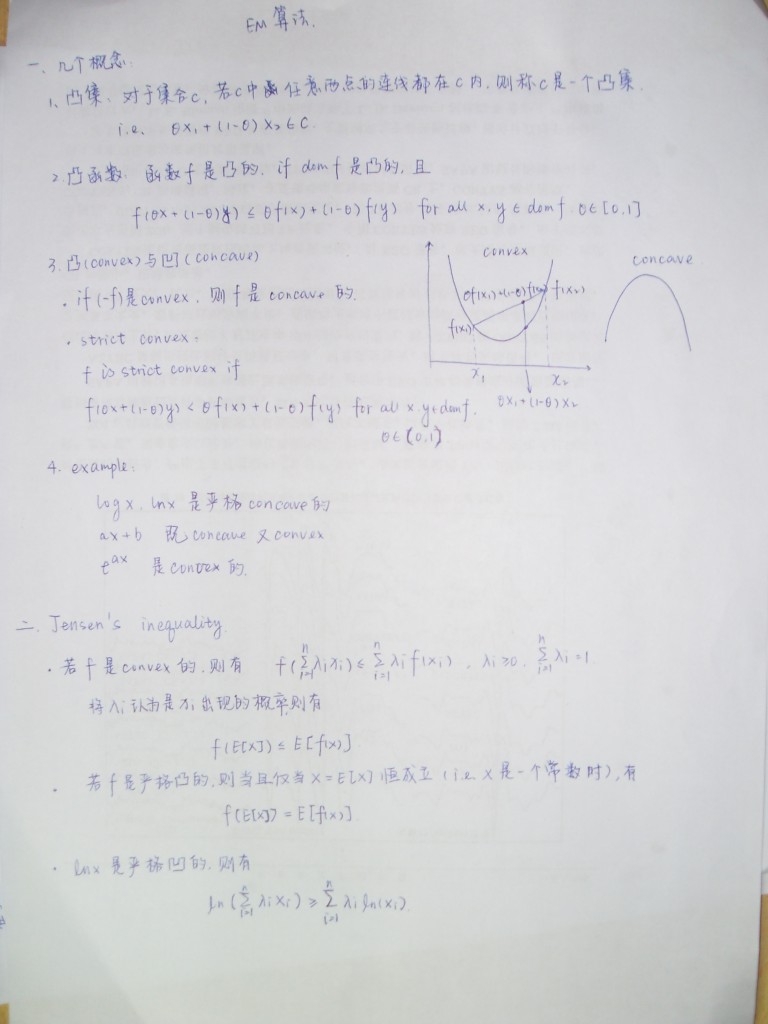 EM 算法.
一、几个概念:
1、凸集、对于集合C, 若C中任意两点的连线都在C内, 则称C是一个凸集.
i.e. θx₁+(1-θ)x₂∈C.
2. 凸函数: 函数f是凸的. if dom f 是凸的, 且
f(θx+(1-θ)y) ≤ θf(x)+(1-θ)f(y) for all x,y∈dom f θ∈[0,1]
3. 凸(convex)与凹(concave)
· if (-f)是convex, 则f是concave的.
· strict convex:
f is strict convex if
f(θx+(1-θ)y) < θf(x)+(1-θ)f(y) for all x,y∈dom f.
θ∈(0,1)
convex
θf(x₁)+(1-θ)f(x₂)
f(x₂)
f(x₁)
x₁
x₂
θx₁+(1-θ)x₂
concave
4. example:
log x, ln x 是严格concave的
ax+b 既concave又convex
e^ax 是convex的.
二. Jensen's inequality.
· 若f是convex的, 则有 f(∑ᵢ₌₁ⁿ λᵢxᵢ) ≤ ∑ᵢ₌₁ⁿ λᵢf(xᵢ), λᵢ≥0, ∑ᵢ₌₁ⁿ λᵢ=1
将λᵢ认为是xᵢ出现的概率则有
f(E[X]) ≤ E[f(x)]
· 若f是严格凸的, 则当且仅当X=E[X]恒成立 (i.e. X是一个常数时), 有
f(E[X]) = E[f(x)]
· ln x 是严格凹的, 则有
ln(∑ᵢ₌₁ⁿ λᵢxᵢ) ≥ ∑ᵢ₌₁ⁿ λᵢ ln(xᵢ)